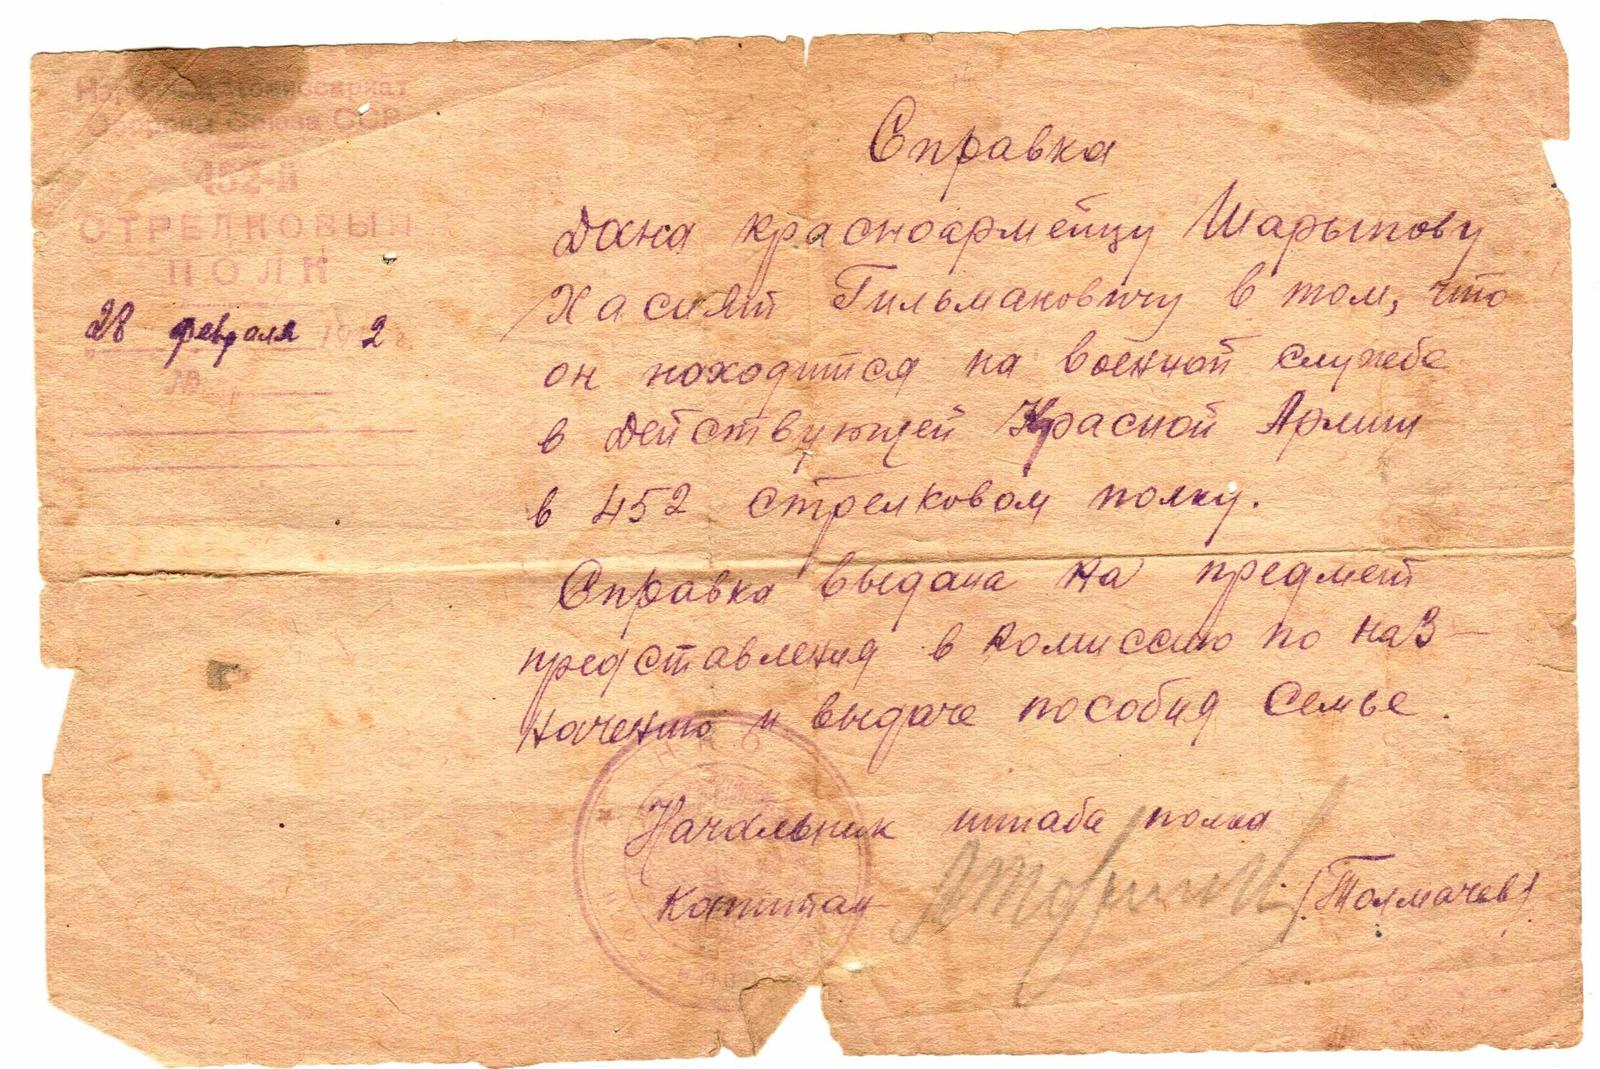 Народный Комиссариат
Обороны Союза ССР
452-й
СТРЕЛКОВЫЙ
ПОЛК
28 февраля 1942 г.
№
Справка
Дана красноармейцу Шарыпову
Хасият Гильмановичу в том, что
он находится на военной службе
в Действующей Красной Армии
в 452 стрелковом полку.
Справка выдана на предмет
представления в комиссию по наз-
начению и выдаче пособия семье.
НКО
Начальник штаба полка
Капитан (Толмачев)